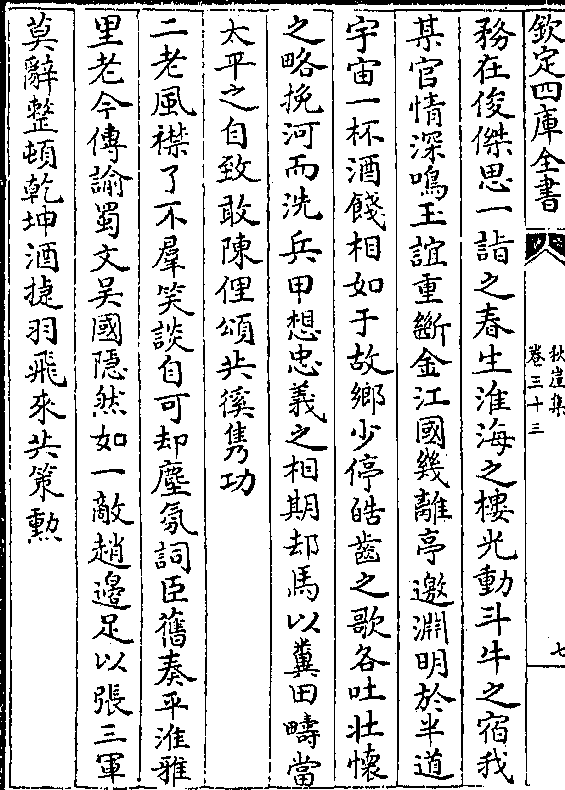 欽定四庫全書
秋崖集
卷三十三
七
務在俊傑思一詣之春生淮海之樓光動斗牛之宿我
某官情深鳴玉誼重斷金江國幾離亭邀淵明於半道
宇宙一杯酒餞相如于故鄉少停皓齒之歌各吐壯懷
之略挽河而洗兵甲想忠義之相期却馬以糞田疇當
太平之自致敢陳俚頌共徯雋功
二老風襟了不羣笑談自可却塵氛詞臣舊奏平淮雅
里老今傳諭蜀文吴國隱然如一敵趙邊足以張三軍
莫辭整頓乾坤酒捷羽飛來共策勲